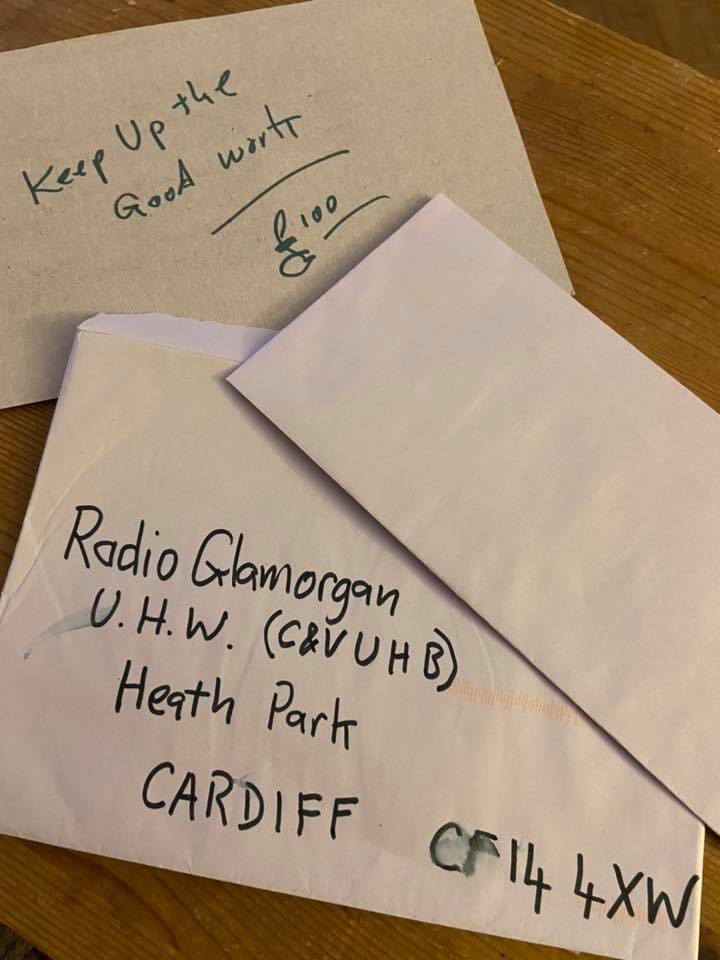 Keep Up the
Good work
£100
Radio Glamorgan
U.H.W. (C&V UHB)
Heath Park
CARDIFF
CF14 4XW